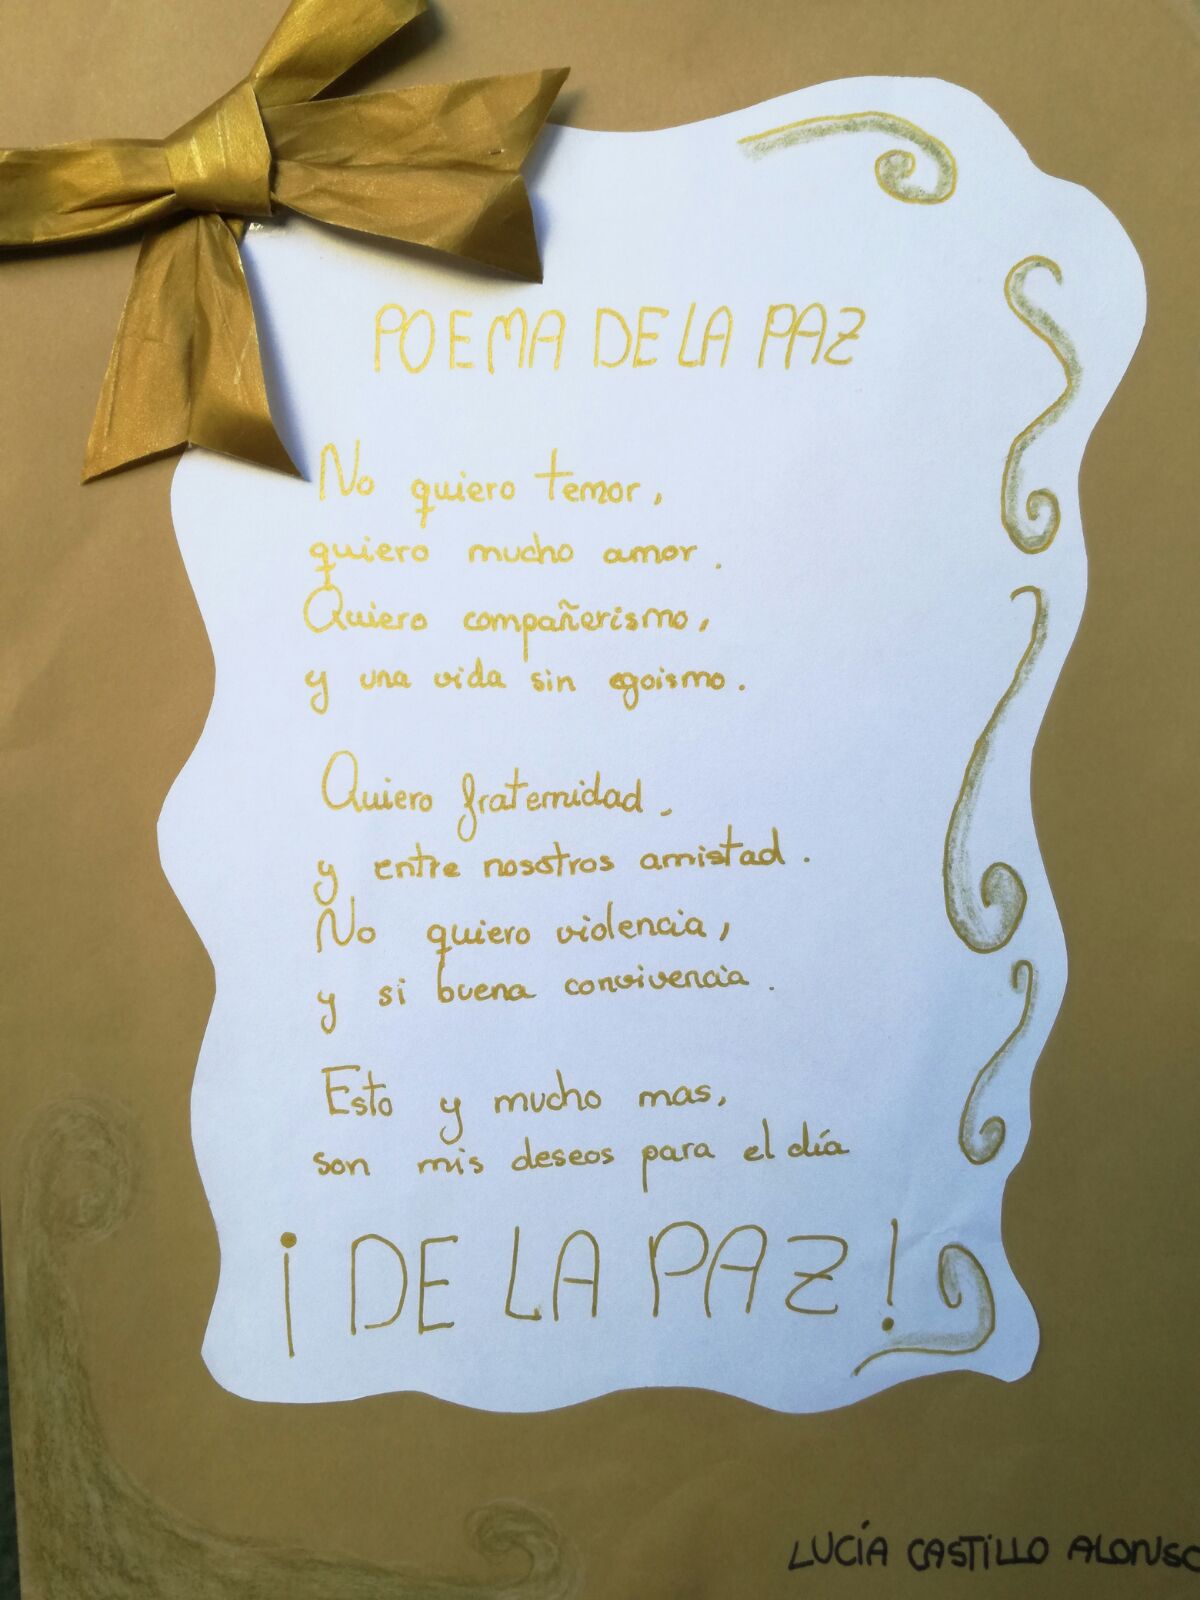 POEMA DE LA PAZ
No quiero temor,
quiero mucho amor.
Quiero compañerismo,
y una vida sin egoismo.
Quiero fraternidad,
y entre nosotros amistad.
No quiero violencia,
y si buena convivencia.
Esto y mucho mas,
son mis deseos para el día
¡DE LA PAZ!
LUCÍA CASTILLO ALONSO